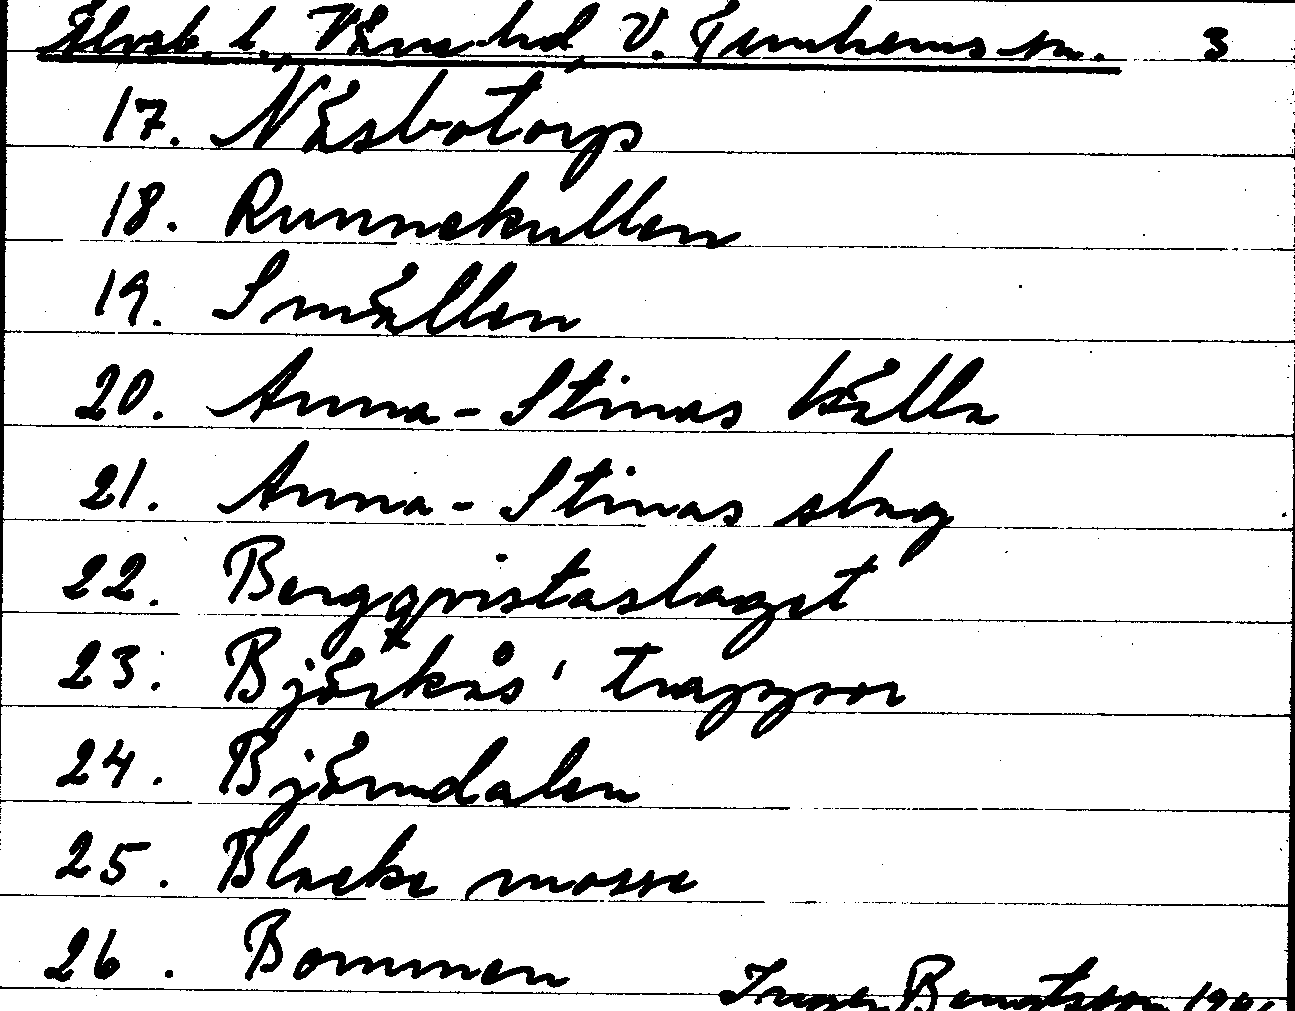 Älvsb. l., Väne hd, V. Tunhems sn. 3
17. Näsbotorp
18. Runnekullen
19. Smällen
20. Anna-Stinas källa
21. Anna-Stinas slag
22. Bergqvistaslaget
23. Björkås' trappor
24. Björndalen
25. Blacke mosse
26. Bommen
Inger Bengtsson